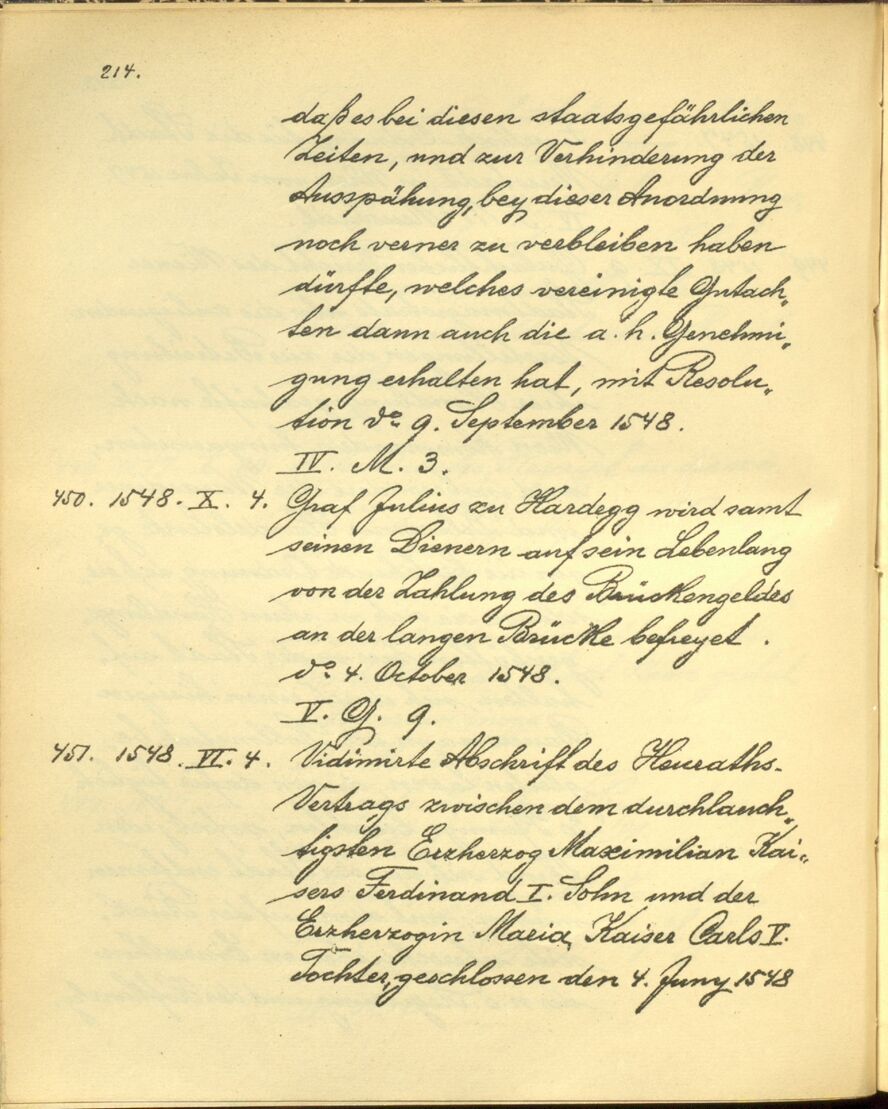 214.
daß es bei diesen staatsgefährlichen
Zeiten, und zur Verhinderung der
Ausspähung, bey dieser Anordnung
noch verner zu verbleiben haben
dürfte, welches vereinigte Gutach„
ten dann auch die a. h. Genehmi„
gung erhalten hat, mit Resolu„
tion do 9. September 1548.
IV. M. 3.
450. 1548. X. 4. Graf Julius zu Hardegg wird samt
seinen Dienern auf sein Lebenlang
von der Zahlung des Brückengeldes
an der langen Brücke befreyet.
do 4. October 1548.
V. G. 9.
451. 1548. VI. 4. Vidimirte Abschrift des Heuraths-
Vertrags zwischen dem durchlauch„
tigsten Erzherzog Maximilian Kai„
sers Ferdinand I. Sohn und der
Erzherzogin Maria, Kaiser Carls V.
Tochter, geschlossen den 4. Juny 1548